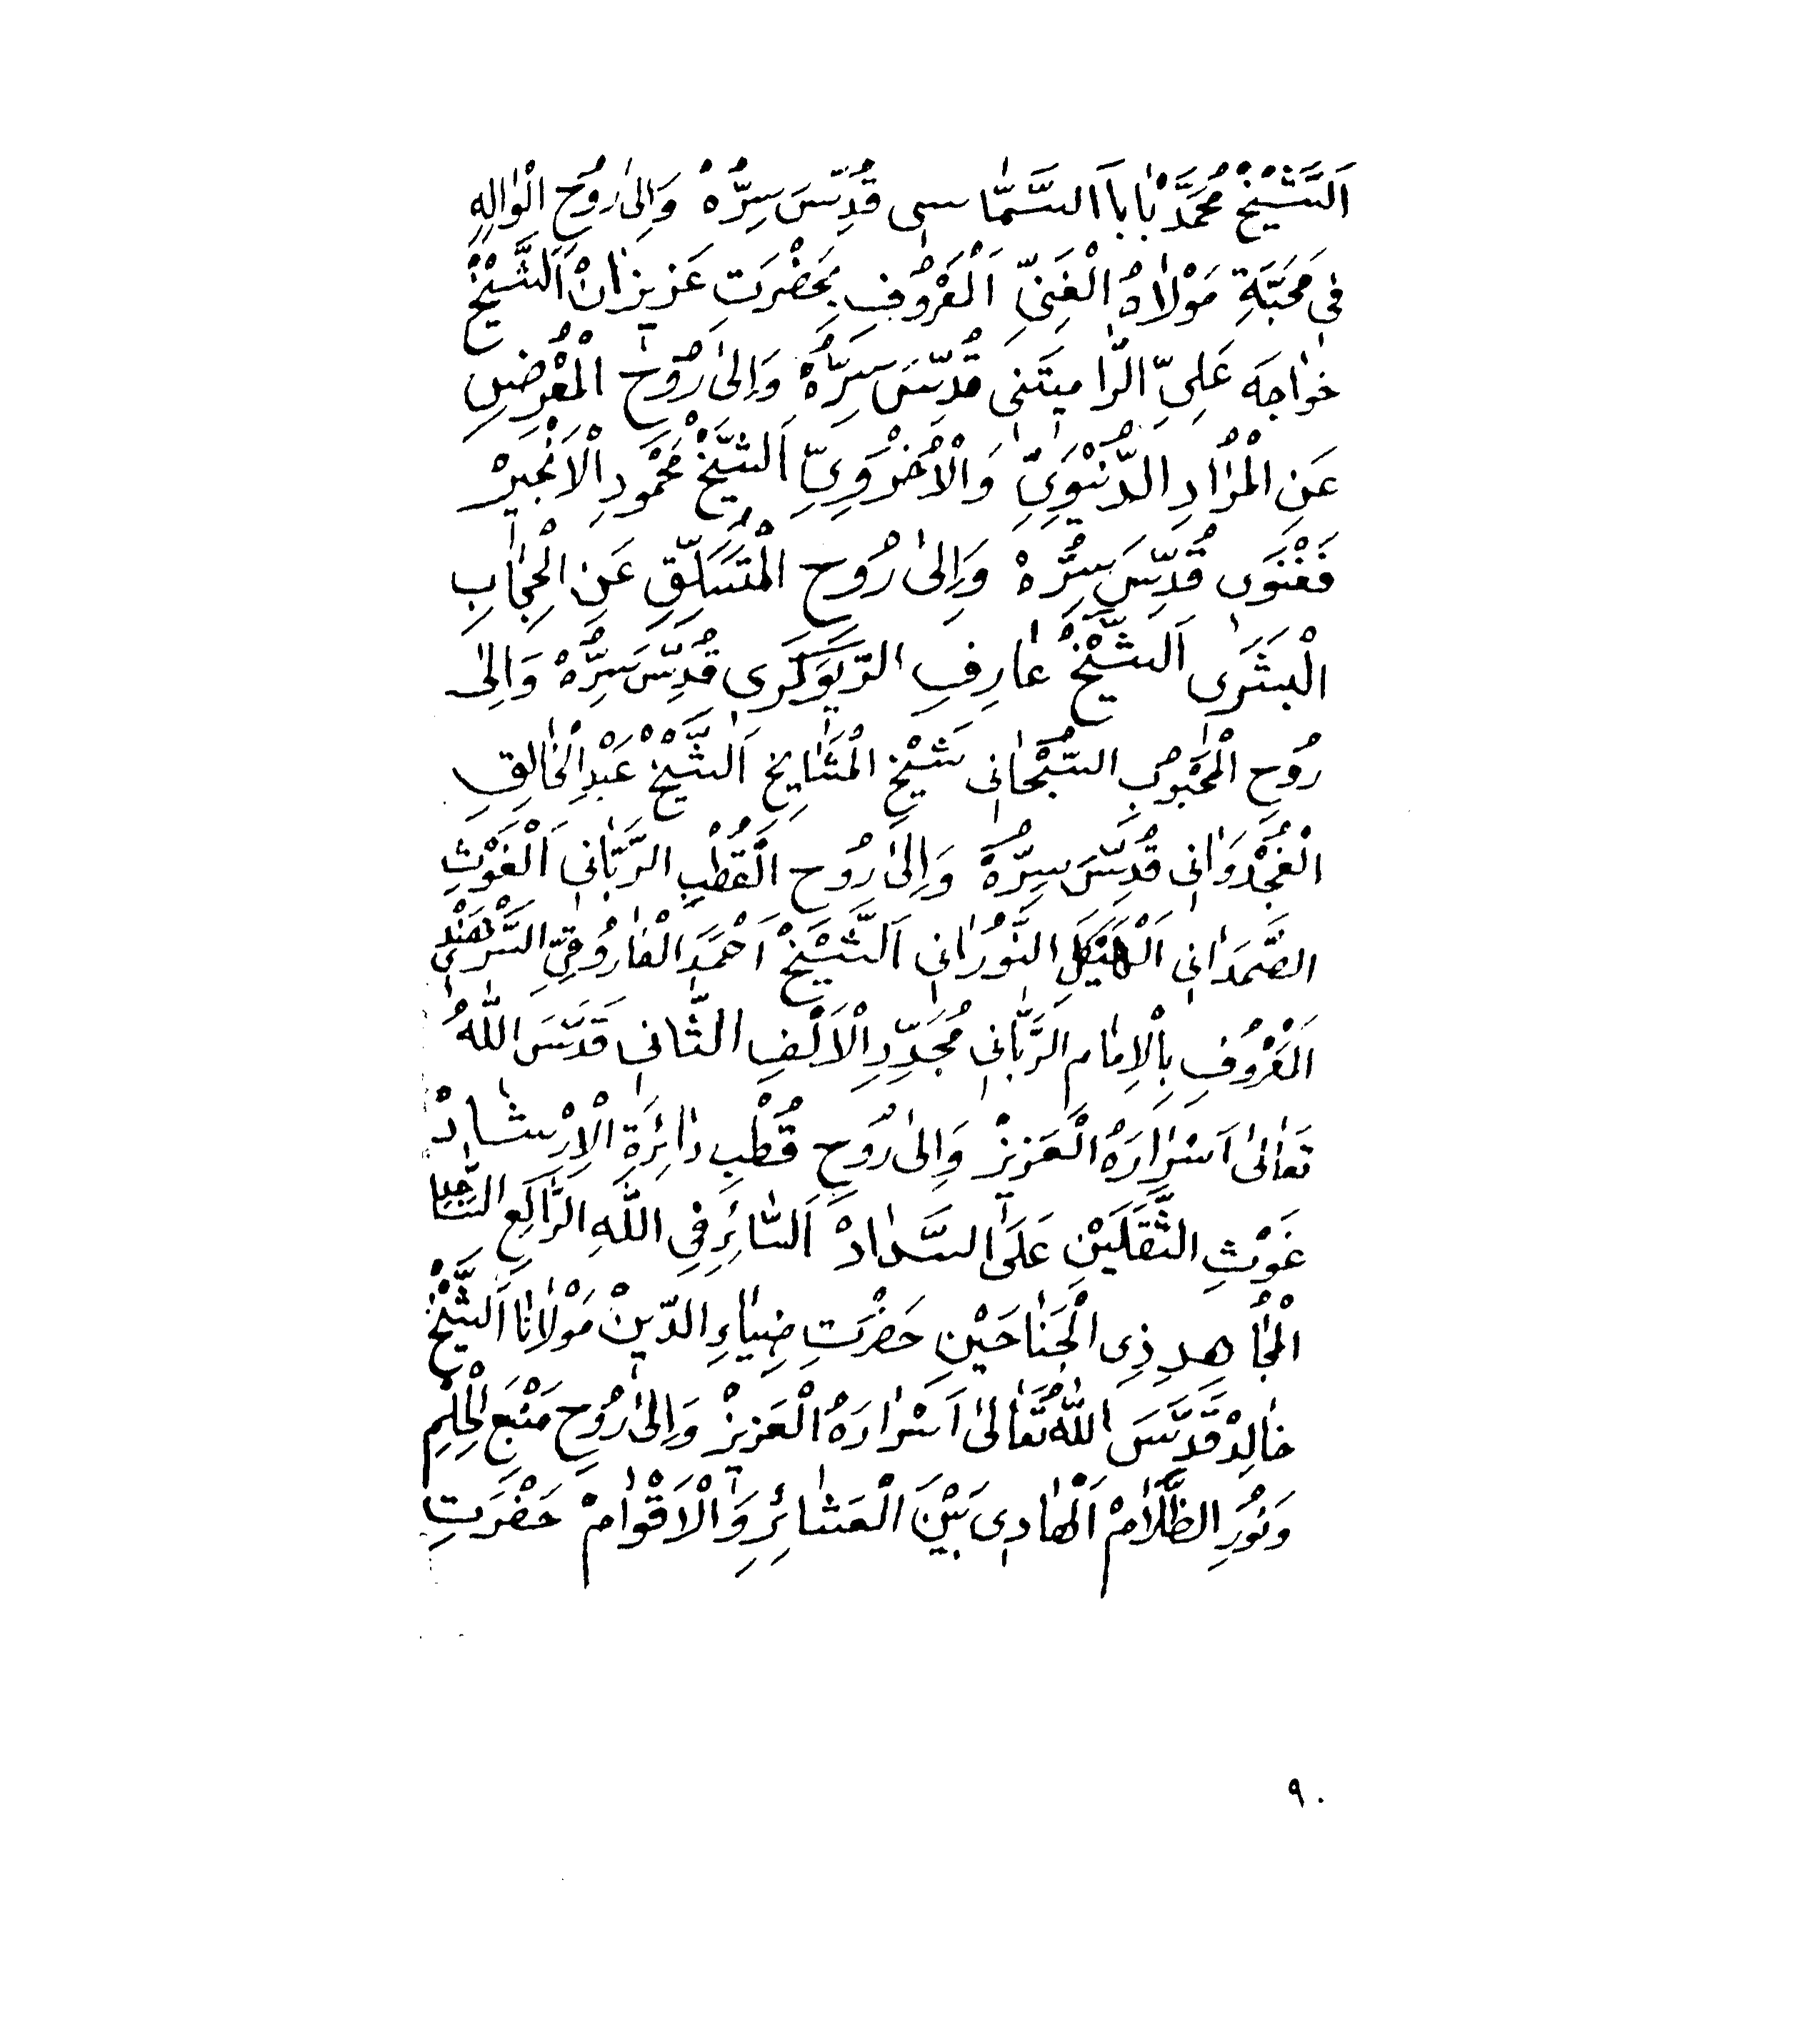 اَلشَّيْخْ مُحَمَّدْ بٰابٰا اَلسَّمّٰاسى قُدِّسَ سِرُّهْ وَاِلىٰ رُوحِ الْوٰالِهِ
فى مَحَبَّةِ مَوْلاٰهُ الْغَنِىِّ اَلْمَعْرُوفِ بِحَضْرَتِ عَزيزٰانْ اَلشَّيْخْ
خوٰاجَه عَلِىِّ الرّٰاميتَنى قُدِّسَ سِرُّهْ وَاِلىٰ رُوحِ الْمُعْرِضِ
عَنِ الْمُرٰادِ الدُّنْيَوِىِّ وَالْاُخْرَوِىِّ اَلشَّيْخْ مَحْمُودِ الْاَنْجيرْ
فَغْنَوى قُدِّسَ سِرُّهْ وَاِلىٰ رُوحِ الْمُتَسَلِّقِ عَنِ الْحِجٰابِ
الْبَشَرى اَلشَّيْخْ عٰارِفِ الرّيوَكَرى قُدِّسَ سِرُّهْ وَاِلىٰ
رُوحِ الْمَحْبُوبِ السُّبْحٰانى شَيْخِ الْمَشٰايِخِ اَلشَّيْخْ عَبْدِ الْخٰالِقِ
الْغُجْدَوٰانى قُدِّسَ سِرُّهْ وَاِلىٰ رُوحِ الْقُطْبِ الرَّبّٰانى اَلْغَوْثِ
الصَّمَدٰانى اَلْهَيْكَلِ النُّورٰانى اَلشَّيْخْ اَحْمَدَ الْفٰارُوقِىِّ السَّرْهَنْدى
اَلْمَعْرُوفِ بِالْاِمٰامِ الرَّبّٰانى مُجَدِّدِ الْاَلْفِ الثّٰانى قَدَّسَ اللّٰهُ
تَعٰالىٰ اَسْرٰارَهُ الْعَزيزْ وَاِلىٰ رُوحِ قُطْبِ دٰائِرَةِ الْاِرْشٰادْ
غَوْثِ الثَّقَلَيْنِ عَلَى السَّدٰادْ اَلسّٰائِرِ فِى اللّٰهِ الرّٰاكِعِ السّٰاجِدِ
الْمُجٰاهِدِ ذِى الْجَنٰاحَيْنِ حَضْرَتِ ضِيٰاءِ الدّينْ مَوْلاٰنٰا اَلشَّيْخْ
خٰالِدْ قَدَّسَ اللّٰهُ تَعٰالىٰ اَسْرٰارَهُ الْعَزيزْ وَاِلىٰ رُوحِ مَنْبَعِ الْحِلْمِ
وَنُورِ الظَّلاٰمْ اَلْهٰادى بَيْنَ الْعَشٰائِرِ وَالْاَقْوٰامْ حَضْرَتِ
٩٠